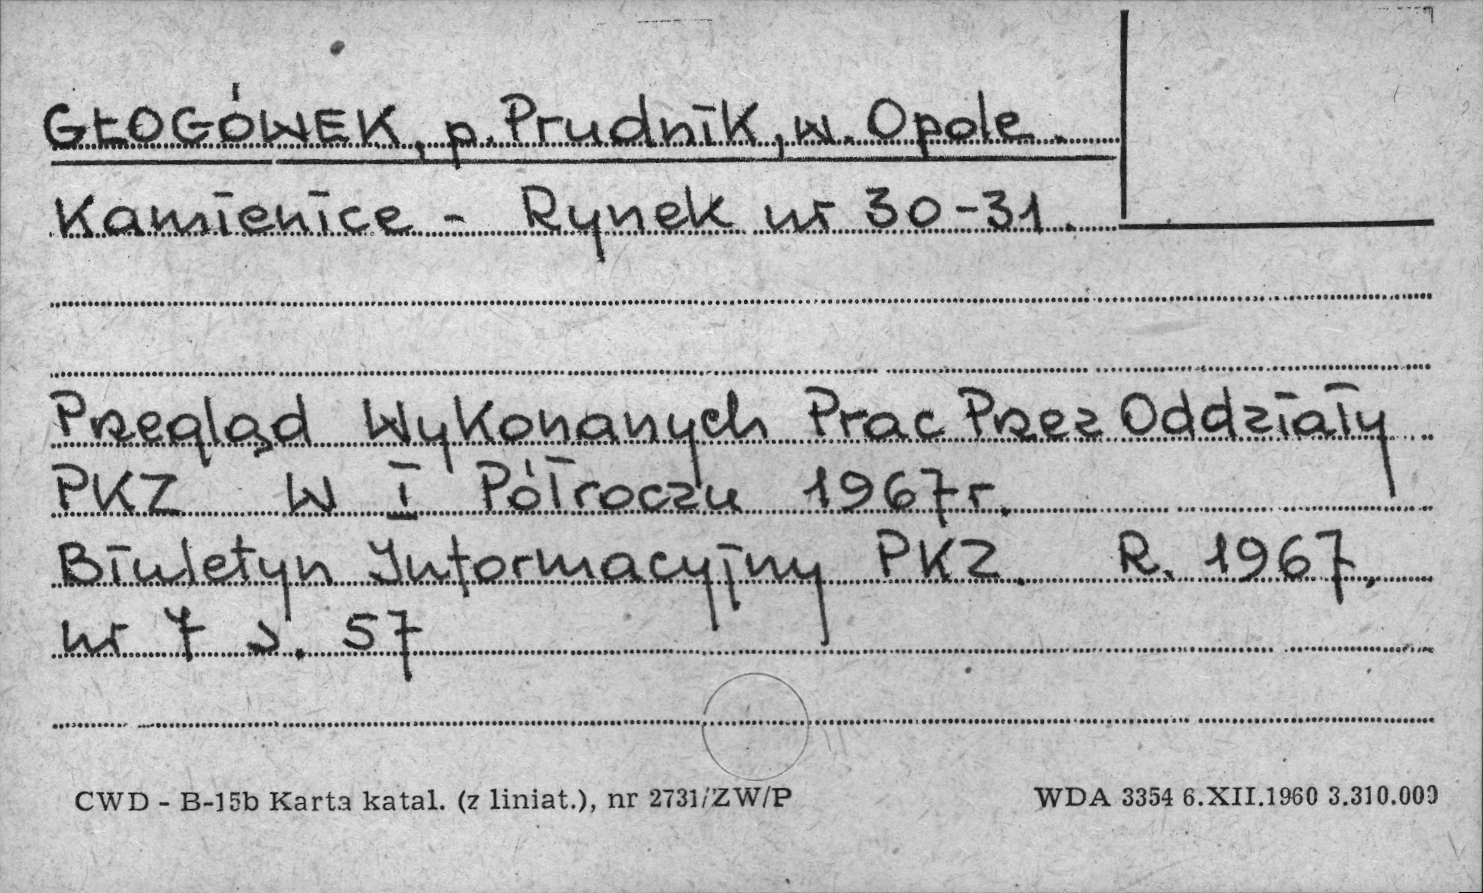 GŁOGÓWEK, p. Prudnik, w. Opole.
Kamienice - Rynek nr 30-31.
Przegląd Wykonanych Prac Przez Oddziały
PKZ w I Półroczu 1967r.
Biuletyn Informacyjny PKZ. R. 1967,
nr 7 s. 57
CWD - B-15b Karta katal. (z liniat.), nr 2731/ZW/P WDA 3354 6.XII.1960 3.310.000